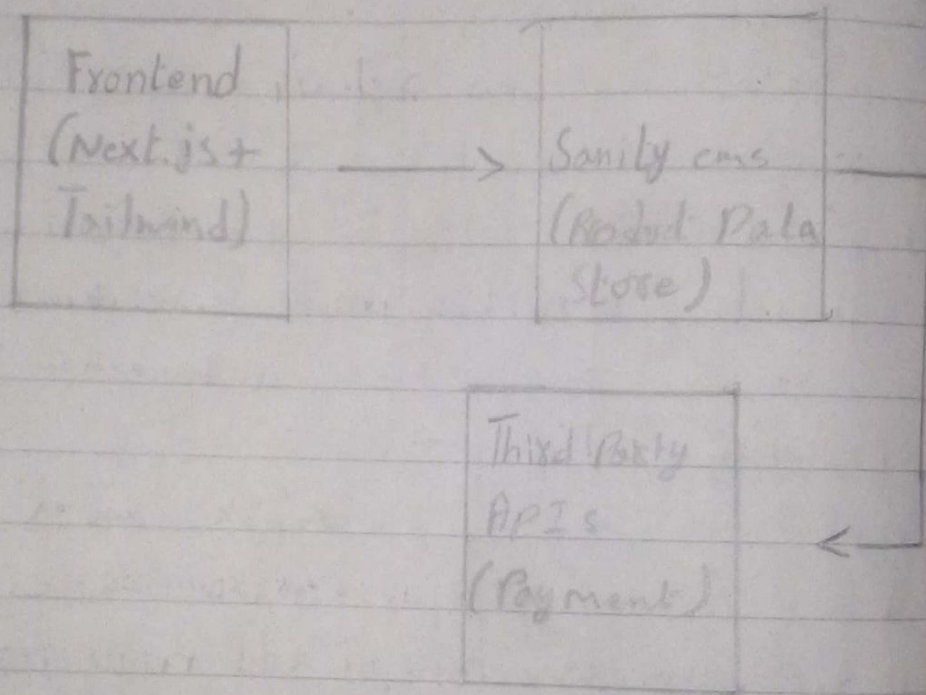 Frontend
(Next.js +
Tailwind)
Sanity cms
(Product Data
Store)
Third Party
APIs
(Payment)